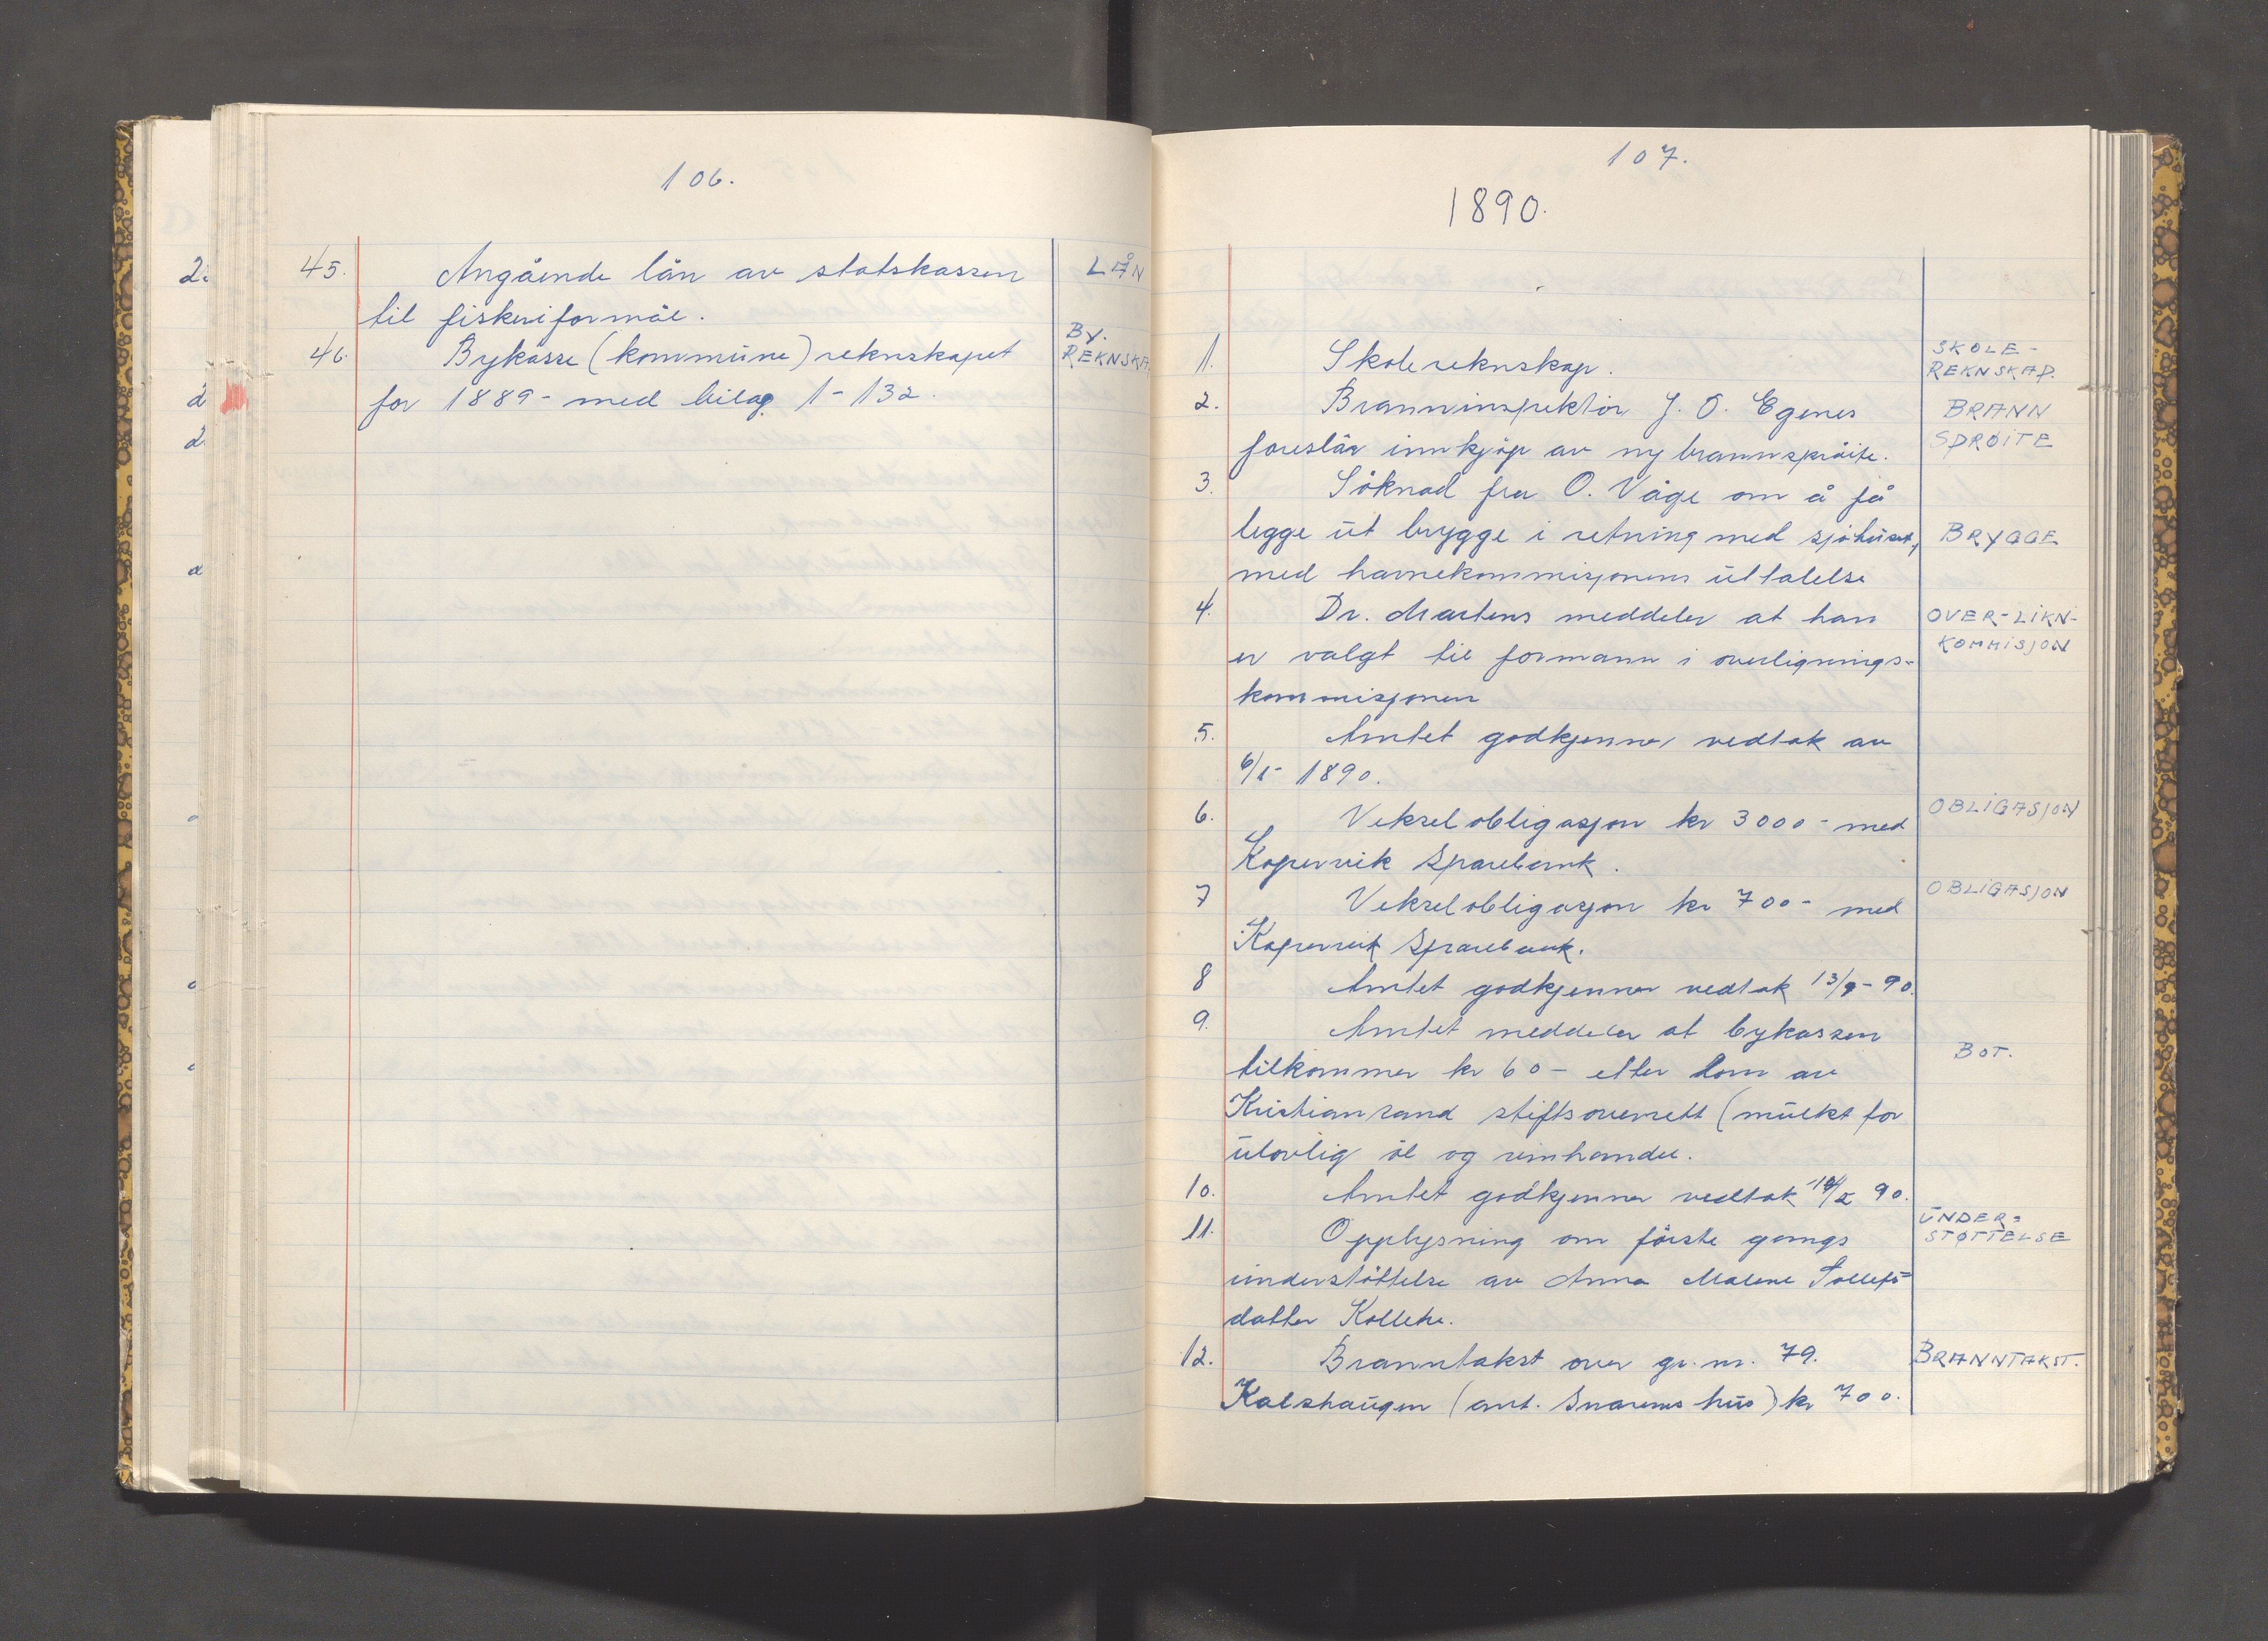 106.
45. Angående lån av statskassen LÅN
til fiskeriformål.
46. Bykasse (kommune) reknskapet BY. REKNSKA
for 1889 - med bilag 1 - 132.
107.
1890.
1. Skolereknskap. SKOLE-REKNSKAP.
2. Branninspektør J. O. Egenes BRANN
foreslår innkjøp av ny brannsprøite. SPRØITE
3. Søknad fra O. Våge om å få
legge ut brygge i retning med sjøhuset, BRYGGE
med havnekommisjonens uttalelse
4. Dr. Martens meddeler at han OVER-LIKN-
er valgt til formann i overlignings- KOMMISJON
kommisjonen
5. Amtet godkjenner vedtak av
6/1- 1890.
6. Vekselobligasjon kr 3000 - med OBLIGASJON
Kopervik Sparebank.
7 Vekselobligasjon kr 700 - med OBLIGASJON
Kopervik Sparebank.
8 Amtet godkjenner vedtak 13/9 - 90.
9. Amtet meddeler at bykassen
tilkommer kr 60 - etter dom av BOT.
Kristiansand stiftsoverrett (mulkt for
ulovlig øl og vinhandel.
10. Amtet godkjenner vedtak 90.
11. Opplysning om første gangs UNDER=STØTTELSE
understøttelse av Anna Malene Tollefs=
datter
12. Branntakst over gr. nr. 79. BRANNTAKST.
Kalshaugen (ant. Snarens hus) kr 700.